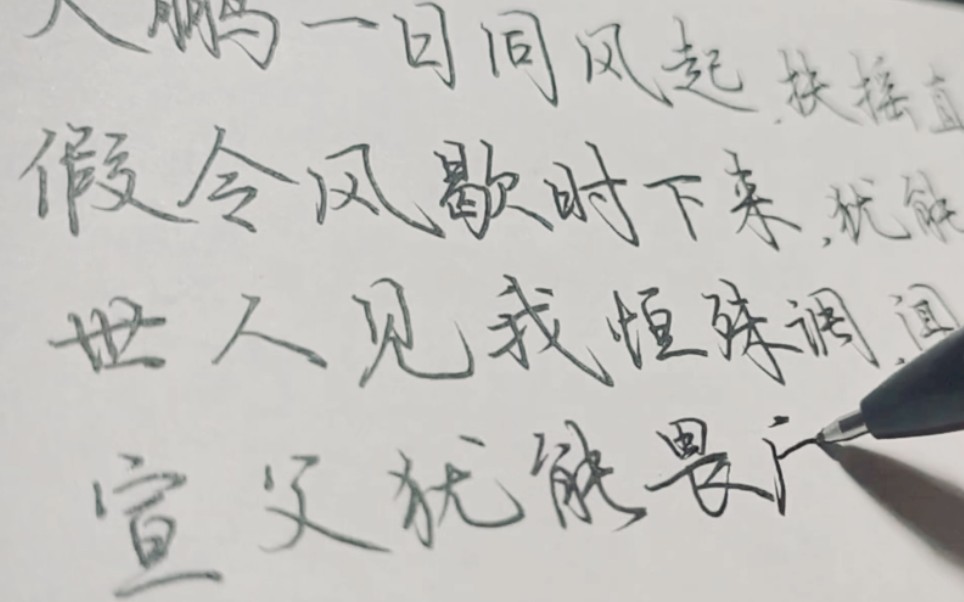 大鹏一日同风起,扶摇直
假令风歇时下来,犹能
世人见我恒殊调,闻
宣父犹能畏